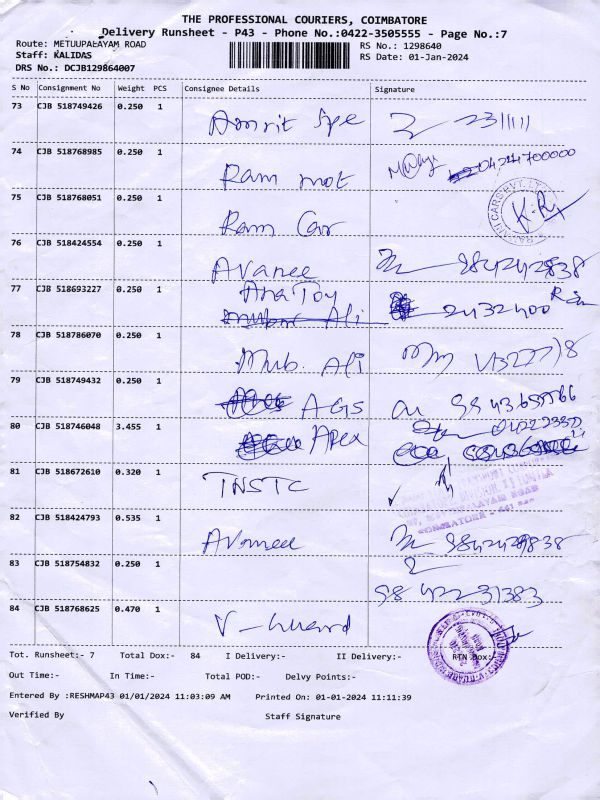 THE PROFESSIONAL COURIERS, COIMBATORE
Delivery Runsheet - P43 - Phone No.:0422-3505555 - Page No.:7
Route: METUUPALAYAM ROAD RS No.: 1298640
Staff: KALIDAS RS Date: 01-Jan-2024
DRS No.: DCJB129864007
S No Consignment No Weight PCS Consignee Details Signature
73 CJB 518749426 0.250 1 Amrit Spe
74 CJB 518768985 0.250 1 Ram mot
75 CJB 518768051 0.250 1 Ram Car
76 CJB 518424554 0.250 1 Avanee 9842428838
77 CJB 518693227 0.250 1 AnaToy 2432400
78 CJB 518786070 0.250 1 Mub. Ali
79 CJB 518749432 0.250 1 AGS
80 CJB 518746048 3.455 1 Apex
81 CJB 518672610 0.320 1 TNSTC
82 CJB 518424793 0.535 1
83 CJB 518754832 0.250 1 98 42231383
84 CJB 518768625 0.470 1 V-Guard
Tot. Runsheet:- 7 Total Dox:- 84 I Delivery:- II Delivery:- RTN Dox:-
Out Time:- In Time:- Total POD:- Delvy Points:-
Entered By :RESHMAP43 01/01/2024 11:03:09 AM Printed On: 01-01-2024 11:11:39
Verified By Staff Signature